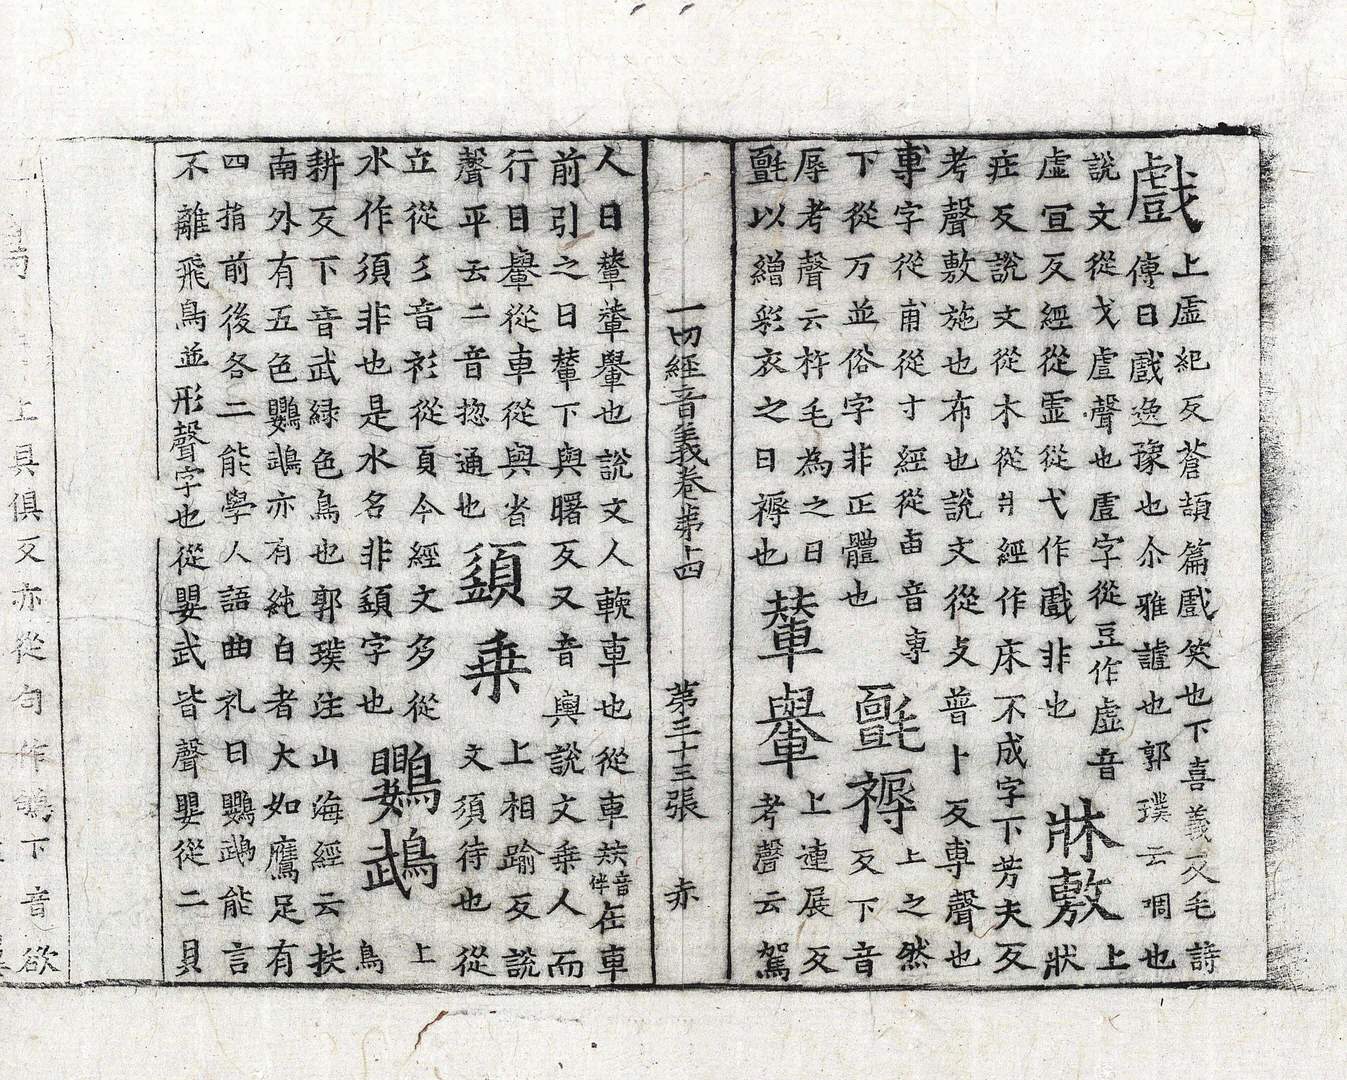 戲 上虛紀反蒼頡篇戲笑也下喜義反毛詩
傳曰戲逸豫也尒雅謔也郭璞云啁也
說文從戈䖒聲也䖒字從豆作虛音
虛宜反經從霊從弋作戱非也 牀敷 上
狀
疰反說文從木從爿經作床不成字下芳夫反
考聲敷施也布也說文從攴普卜反尃聲也
尃字從甫從寸經從亩音專
下從万並俗字非正體也 氈褥 上之然
反下音
辱考聲云杵毛為之曰
氈以繒彩衣之曰褥也 輦轝 上連展反
考聲云駕
一切經音義卷第十四 第三十三張 赤
人曰輦輦轝也說文人輓車也從車㚘音伴在車
前引之曰輦下與曙反又音輿說文乗人而
行曰轝從車從與省
聲平云二音揔通也 䇓乗 上相踰反說
文須待也從
立從彡音衫從頁今經文多從
水作須非也是水名非䇓字也 鸚鵡 上
鳥
耕反下音武緑色鳥也郭璞注山海經云扶
南外有五色鸚鵡亦有純白者大如鷹足有
四指前後各二能學人語曲礼曰鸚鵡能言
不離飛鳥並形聲字也從嬰武皆聲嬰從二貝
上具俱反亦從句作鴝下音欲